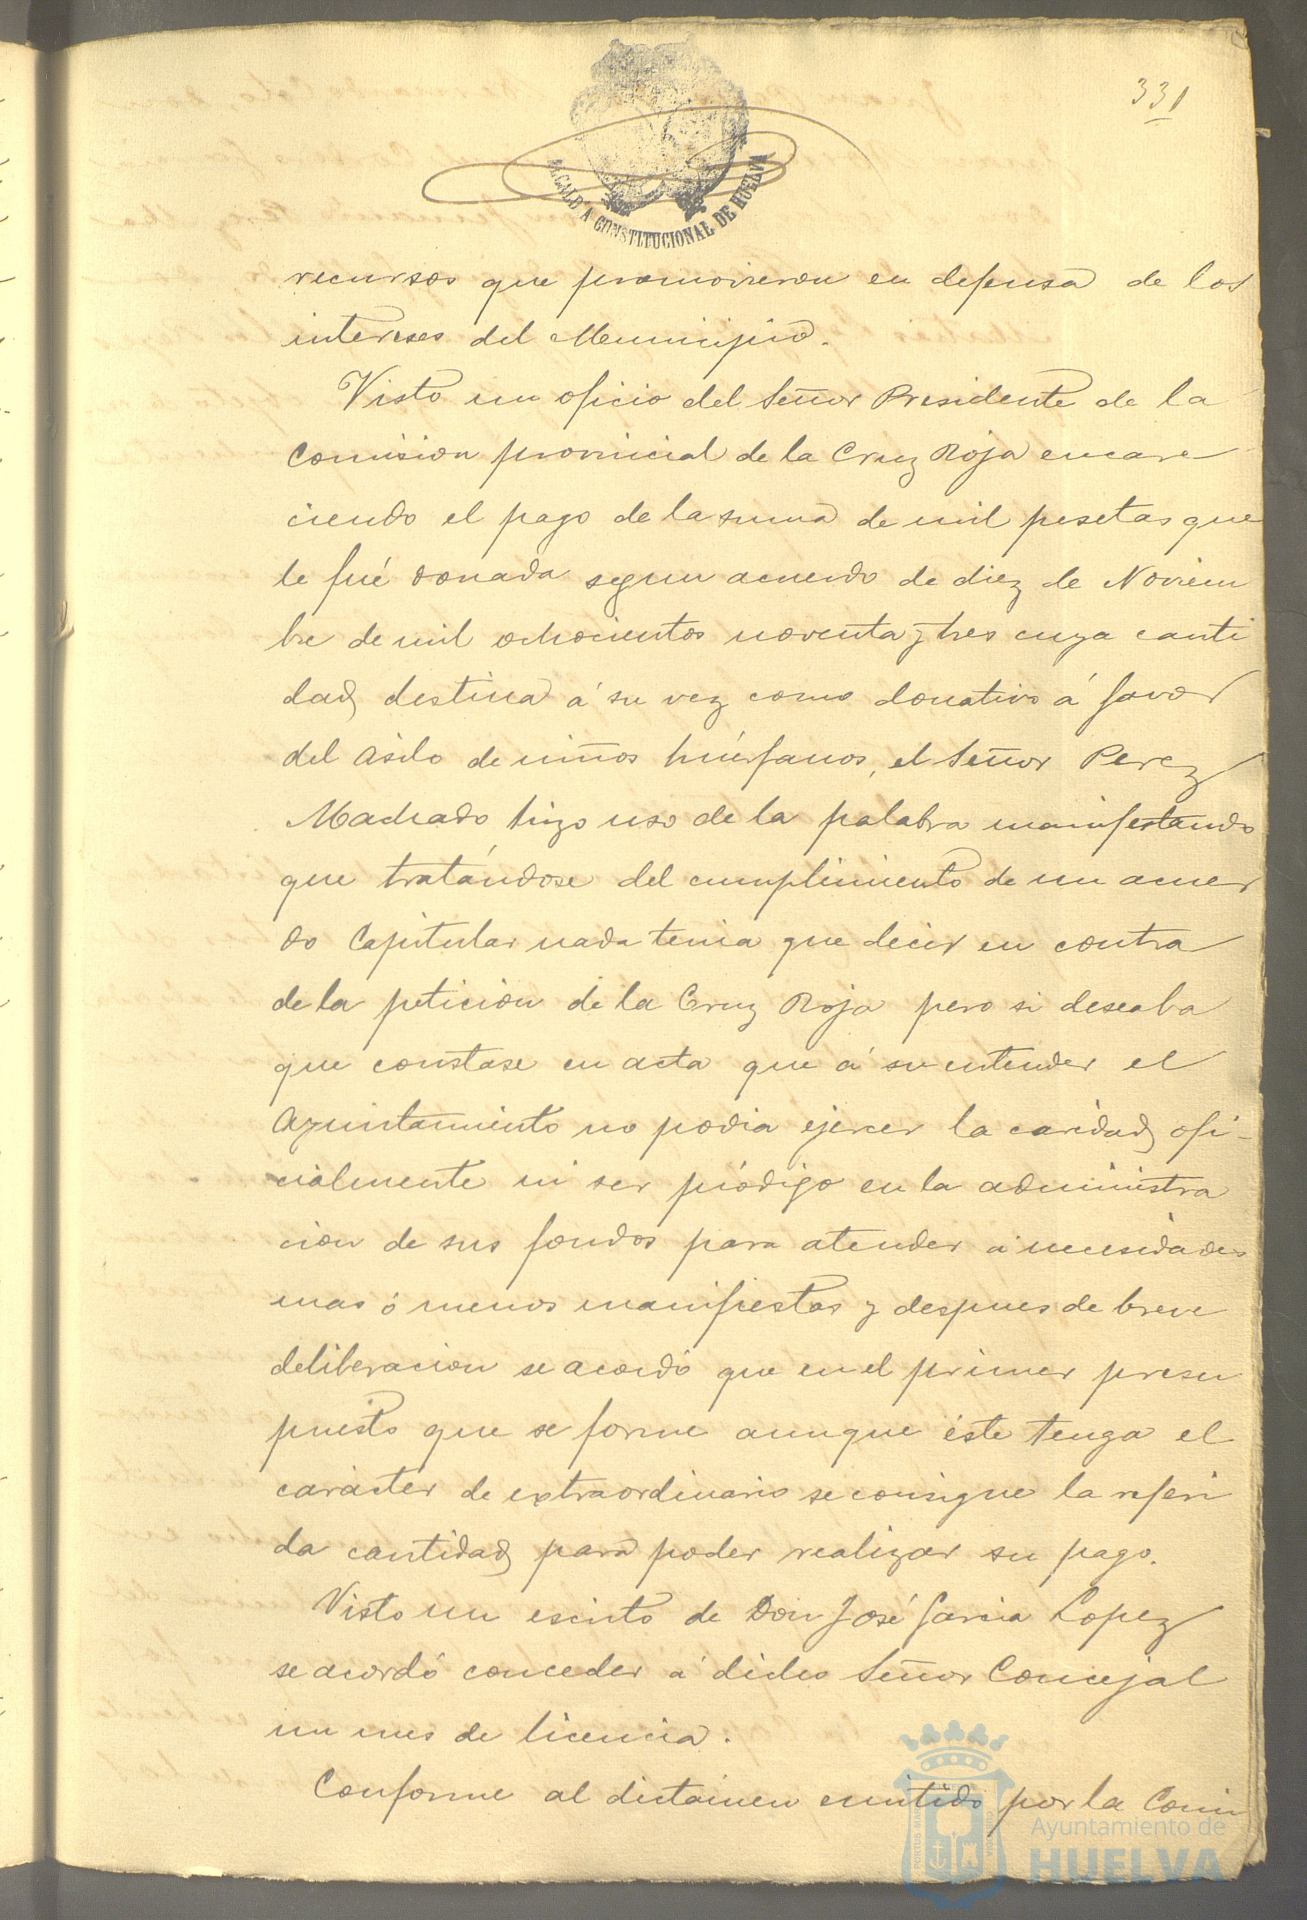 331
ALCALDÍA CONSTITUCIONAL DE HUELVA
recursos que promovieron en defensa de los
intereses del Municipio.
Visto un oficio del Señor Presidente de la
Comision provincial de la Cruz Roja encare
ciendo el pago de la suma de mil pesetas que
le fué donada segun acuerdo de diez de Noviem
bre de mil ochocientos noventa y tres cuya canti
dad destina á su vez como donativo á favor
del asilo de niños huérfanos, el Señor Perez
Machado hizo uso de la palabra manifestando
que tratándose del cumplimiento de un acuer
do Capitular nada tenia que decir en contra
de la peticion de la Cruz Roja pero si deseaba
que constase en acta que á su entender el
Ayuntamiento no podia ejercer la caridad ofi-
cialmente ni ser pródigo en la administra
cion de sus fondos para atender á necesidades
mas ó menos manifiestas y despues de breve
deliberacion se acordó que en el primer presu
puesto que se forme aunque éste tenga el
carácter de extraordinario se consigne la referi
da cantidad para poder realizar su pago.
Visto un escrito de Don José Garcia Lopez
se acordó conceder á dicho Señor Concejal
un mes de licencia.
Conforme al dictámen emitido por la Comi
Ayuntamiento de
HUELVA